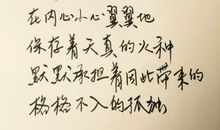 在内心小心翼翼地
保存着天真的火种
默默承担着因此带来的
格格不入的孤独